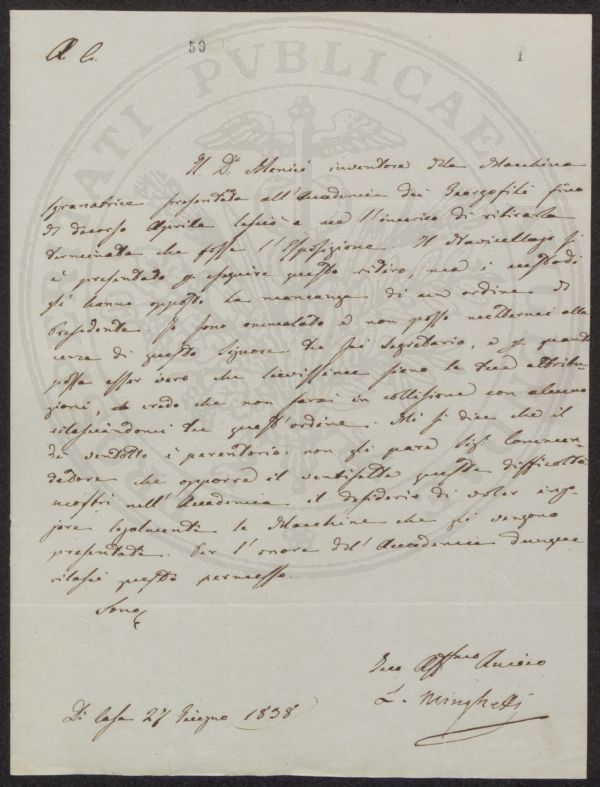 A C. 59 1
Il Dr. Menici inventore della Macchina
sgranatrice presentata all'Accademia dei Georgofili fino
di decorso Aprile lasciò a me l'incarico di ritirarla
terminata che fosse l'Esposizione. Il Navicellajo si
è presentato p eseguire questo ritiro, ma i custodi
gli hanno opposto la mancanza di un ordine di
Presidente. Io sono ammalato e non posso mettermi alla
cerca di questo Signore. Tu sei Segretario, e p quanto
possa esser vero che lievissime sieno le tue attribu-
zioni, credo che non sarai in collisione con alcuno
rilasciandomi tu quest'ordine. Mi si dice che il
dì ventotto è perentorio: non gli pare Sigr Commen-
datore che opporre il ventisette queste difficoltà
mostri nell'Accademia il desiderio di voler ingo-
jare legalmente le Macchine che gli vengono
presentate. Per l'onore dell'Accademia dunque
rilascia questo permesso.
Sono
Tuo Affmo Amico
L. Minghetti
Di Casa 27 Giugno 1838